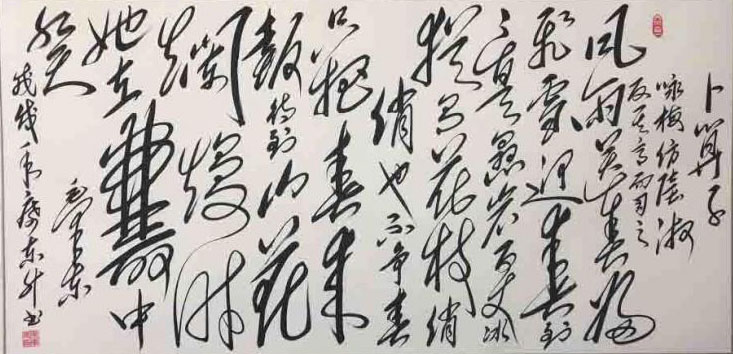 卜算子
咏梅仿陆
反其意而用之
风雨送春归
飞雪迎春到
已是悬崖百丈冰
犹有花枝俏
俏也不争春
只把春来
报待到山花
烂熳时
她在叢中
笑
毛泽东
戊戌年廖东升书